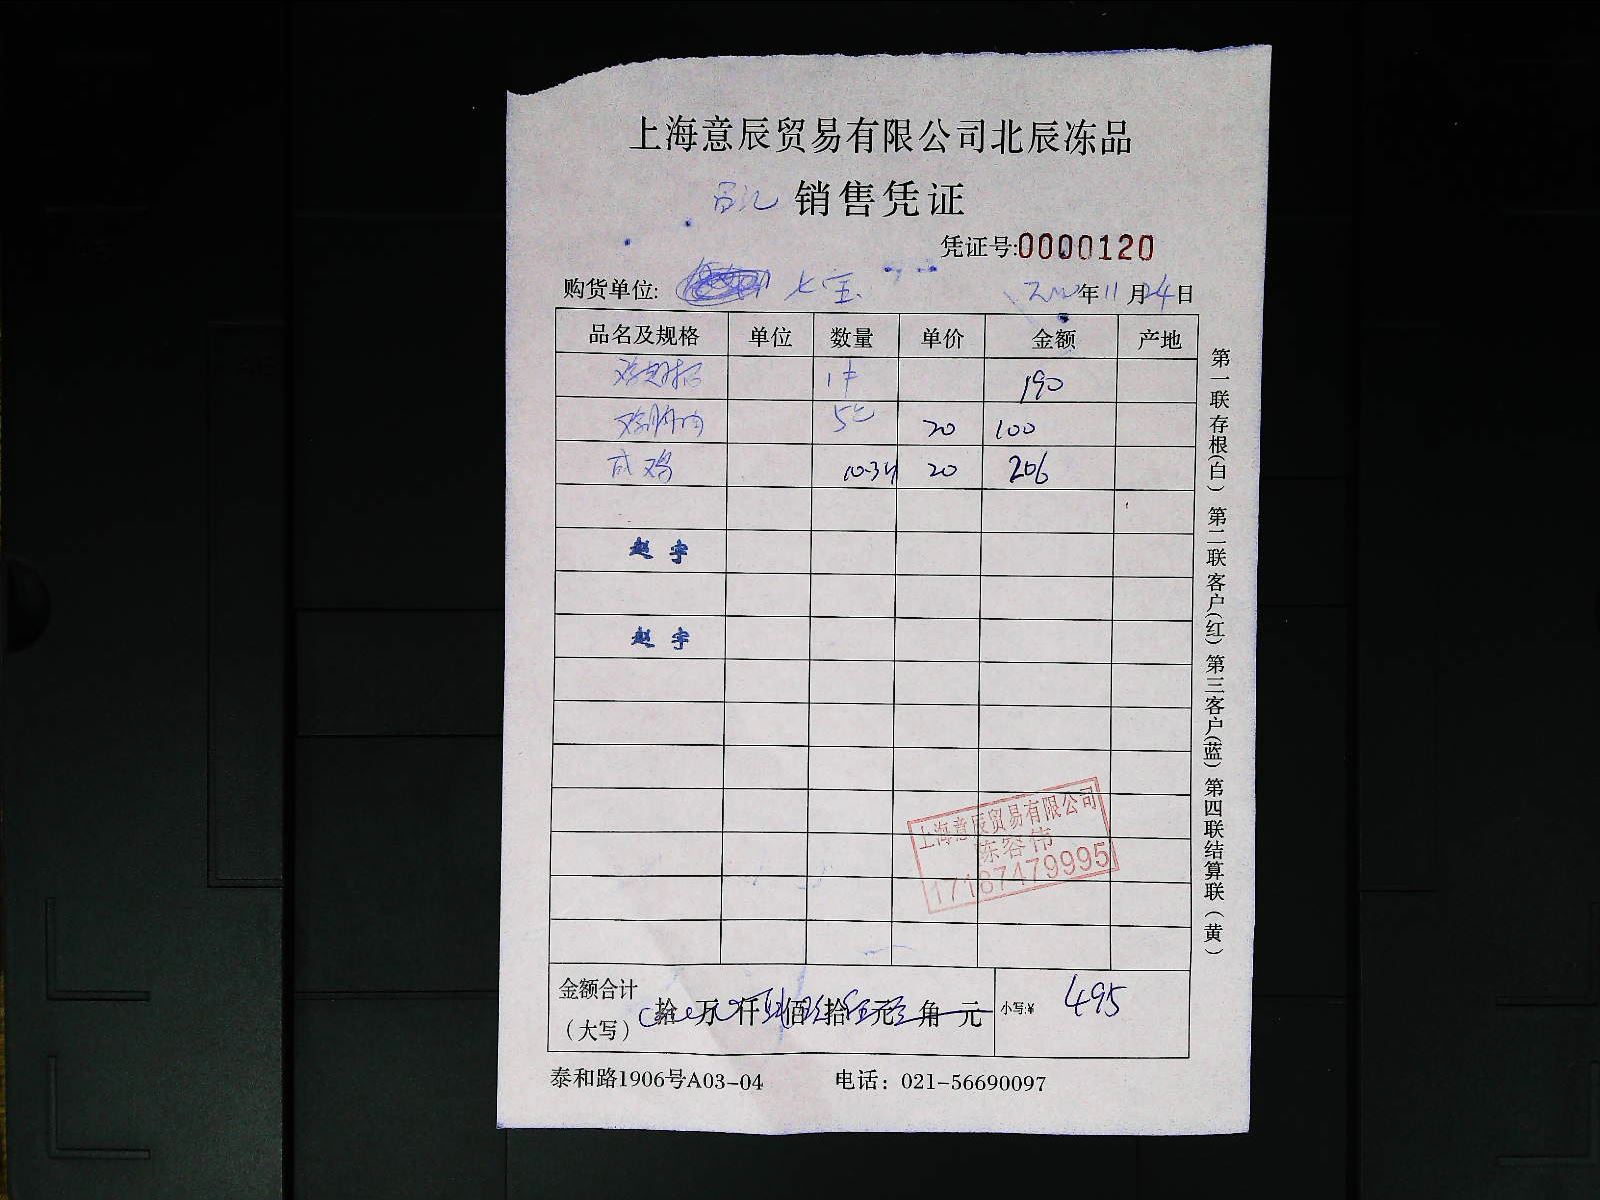 上海意辰贸易有限公司北辰冻品
销售凭证
凭证号:0000120
购货单位: 七宝 年11月24日
品名及规格 单位 数量 单价 金额 产地
1件 190
20 100
咸鸡 20 206
赵宇
赵宇
上海意辰贸易有限公司
17167479995
金额合计
(大写) 拾 万 仟 佰 拾 元 角 元 小写:¥ 495
泰和路1906号A03-04 电话: 021-56690097
第一联存根(白) 第二联客户(红) 第三客户(蓝) 第四联结算联(黄)